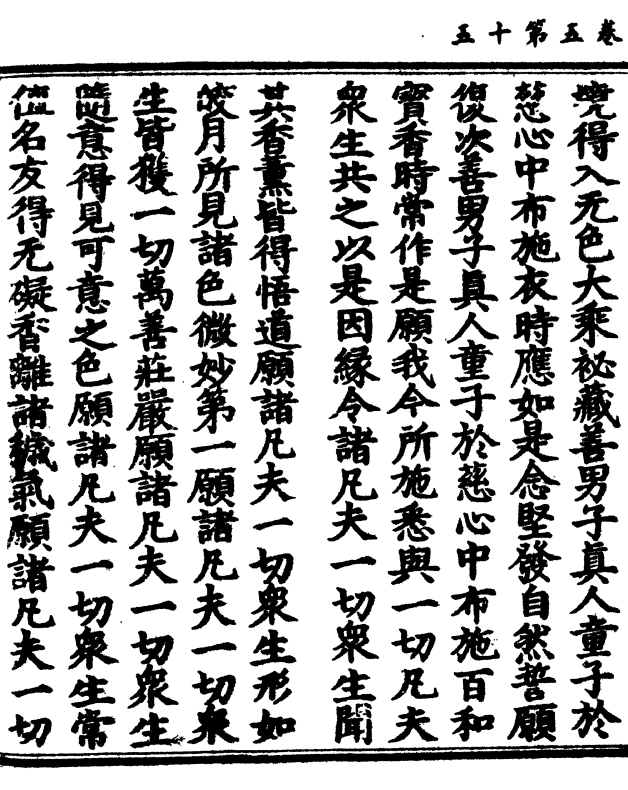 卷五第十五
曉得入无色大乘祕藏善男子真人童子於
慈心中布施衣時應如是念堅發自然誓願
復次善男子真人童子於慈心中布施百和
寶香時常作是願我今所施悉與一切凡夫
衆生共之以是因緣令諸凡夫一切衆生聞
其香薰皆得悟道願諸凡夫一切衆生形如
皎月所見諸色微妙第一願諸凡夫一切衆
生皆獲一切萬善莊嚴願諸凡夫一切衆生
隨意得見可意之色願諸凡夫一切衆生常
值名友得无礙香離諸穢氣願諸凡夫一切